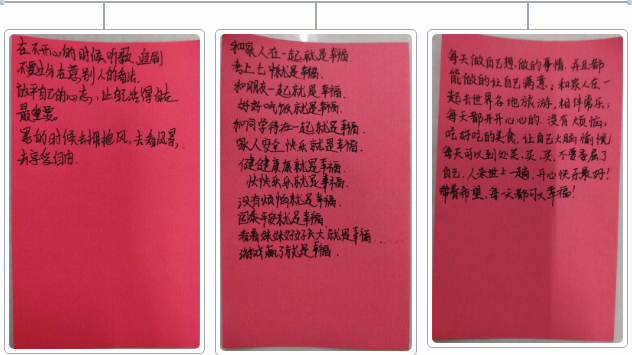 在不开心的时候,听歌,追剧
不要过分在意别人的看法.
放平自己的心态,让自己过得自在
最重要.
累的时候去拥抱风,去看风景,
去享受自由.
和家人在一起就是幸福.
考上七中就是幸福.
和朋友一起就是幸福.
好好吃饭就是幸福.
和同学待在一起就是幸福.
家人安全、快乐就是幸福.
健健康康就是幸福.
快快乐乐就是幸福.
没有烦恼就是幸福.
国泰平安就是幸福.
看着妹妹好好长大就是幸福.
游戏赢了就是幸福.
每天做自己想做的事情,并且都
能做的让自己满意;和家人在一
起去世界各地旅游,相伴常乐;
每天都开开心心的,没有烦恼;
吃好吃的美食,让自己大脑愉悦
每天可以到处买、买、买,不要委屈了
自己,人来世上一趟,开心快乐最好!
带着希望,每一天都可以幸福!